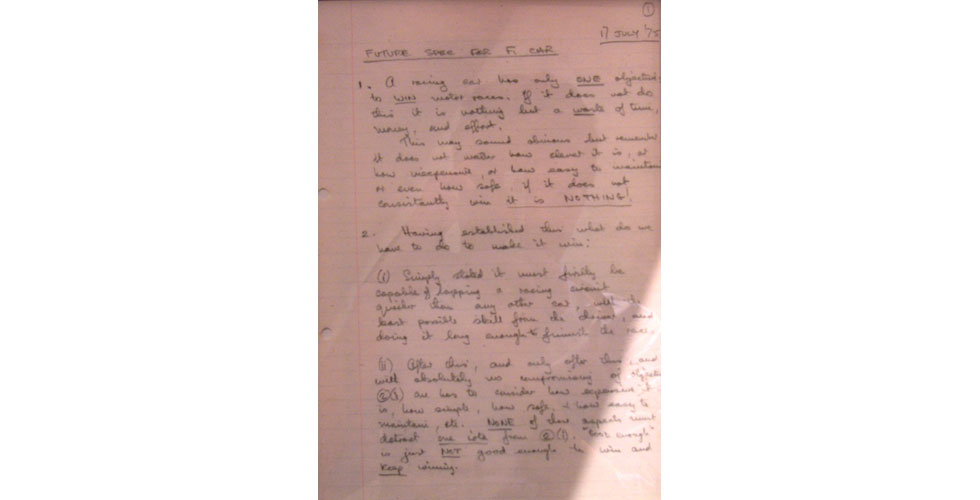 1
17 JULY '75
FUTURE SPEC FOR F1 CAR
1. A racing car has only ONE objective:
to WIN motor races. If it does not do
this it is nothing but a waste of time,
money, and effort.
This may sound obvious but remember
it does not matter how clever it is, or
how inexpensive, or how easy to maintain
or even how safe, if it does not
consistantly win it is NOTHING!
2. Having established this what do we
have to do to make it win:
(i) Simply stated it must firstly be
capable of lapping a racing circuit
quicker than any other car, with the
least possible skill from the driver, and
doing it long enough to finish the race.
(ii) After this, and only after this, and
with absolutely no compromising of objective
2(i) one has to consider how expensive it
is, how simple, how safe, & how easy to
maintain, etc. NONE of these aspects must
detract one iota from 2(i). "Good enough"
is just NOT good enough to win and
KEEP winning.